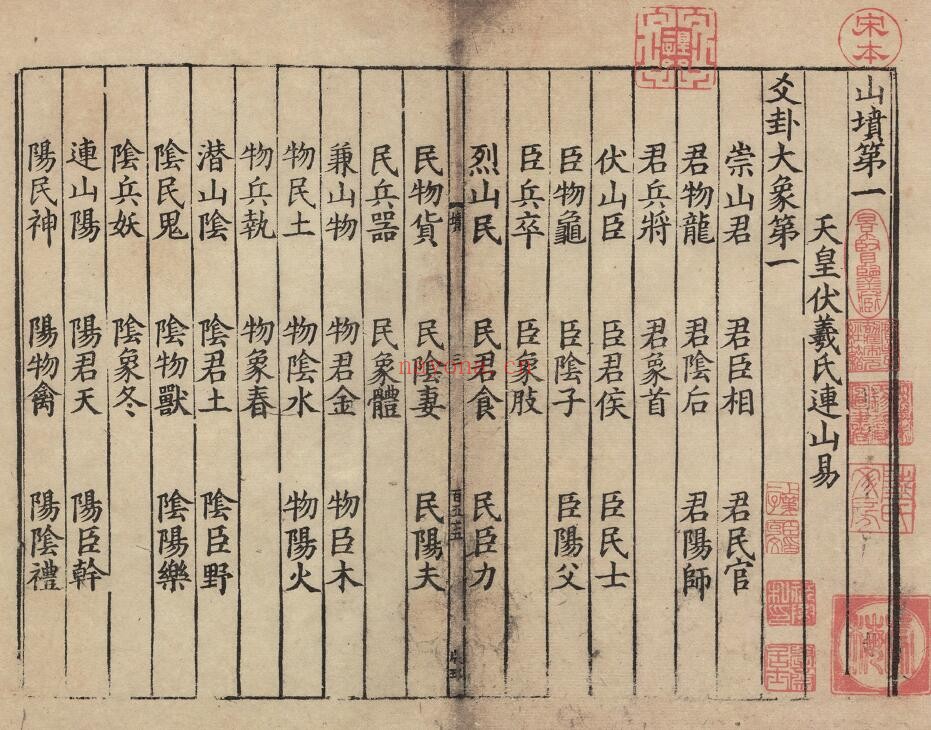 山墳第一
天皇伏羲氏連山易
爻卦大象第一
崇山君 君臣相 君民官
君物龍 君陰后 君陽師
君兵將 君象首
伏山臣 臣君侯 臣民士
臣物龜 臣陰子 臣陽父
臣兵卒 臣象肢
烈山民 民君食 民臣力
民物貨 民陰妻 民陽夫
民兵器 民象體
兼山物 物君金 物臣木
物民土 物陰水 物陽火
物兵執 物象春
潜山陰 陰君土 陰臣野
陰民鬼 陰物獸 陰陽樂
陰兵妖 陰象冬
連山陽 陽君天 陽臣幹
陽民神 陽物禽 陽陰禮
宋本